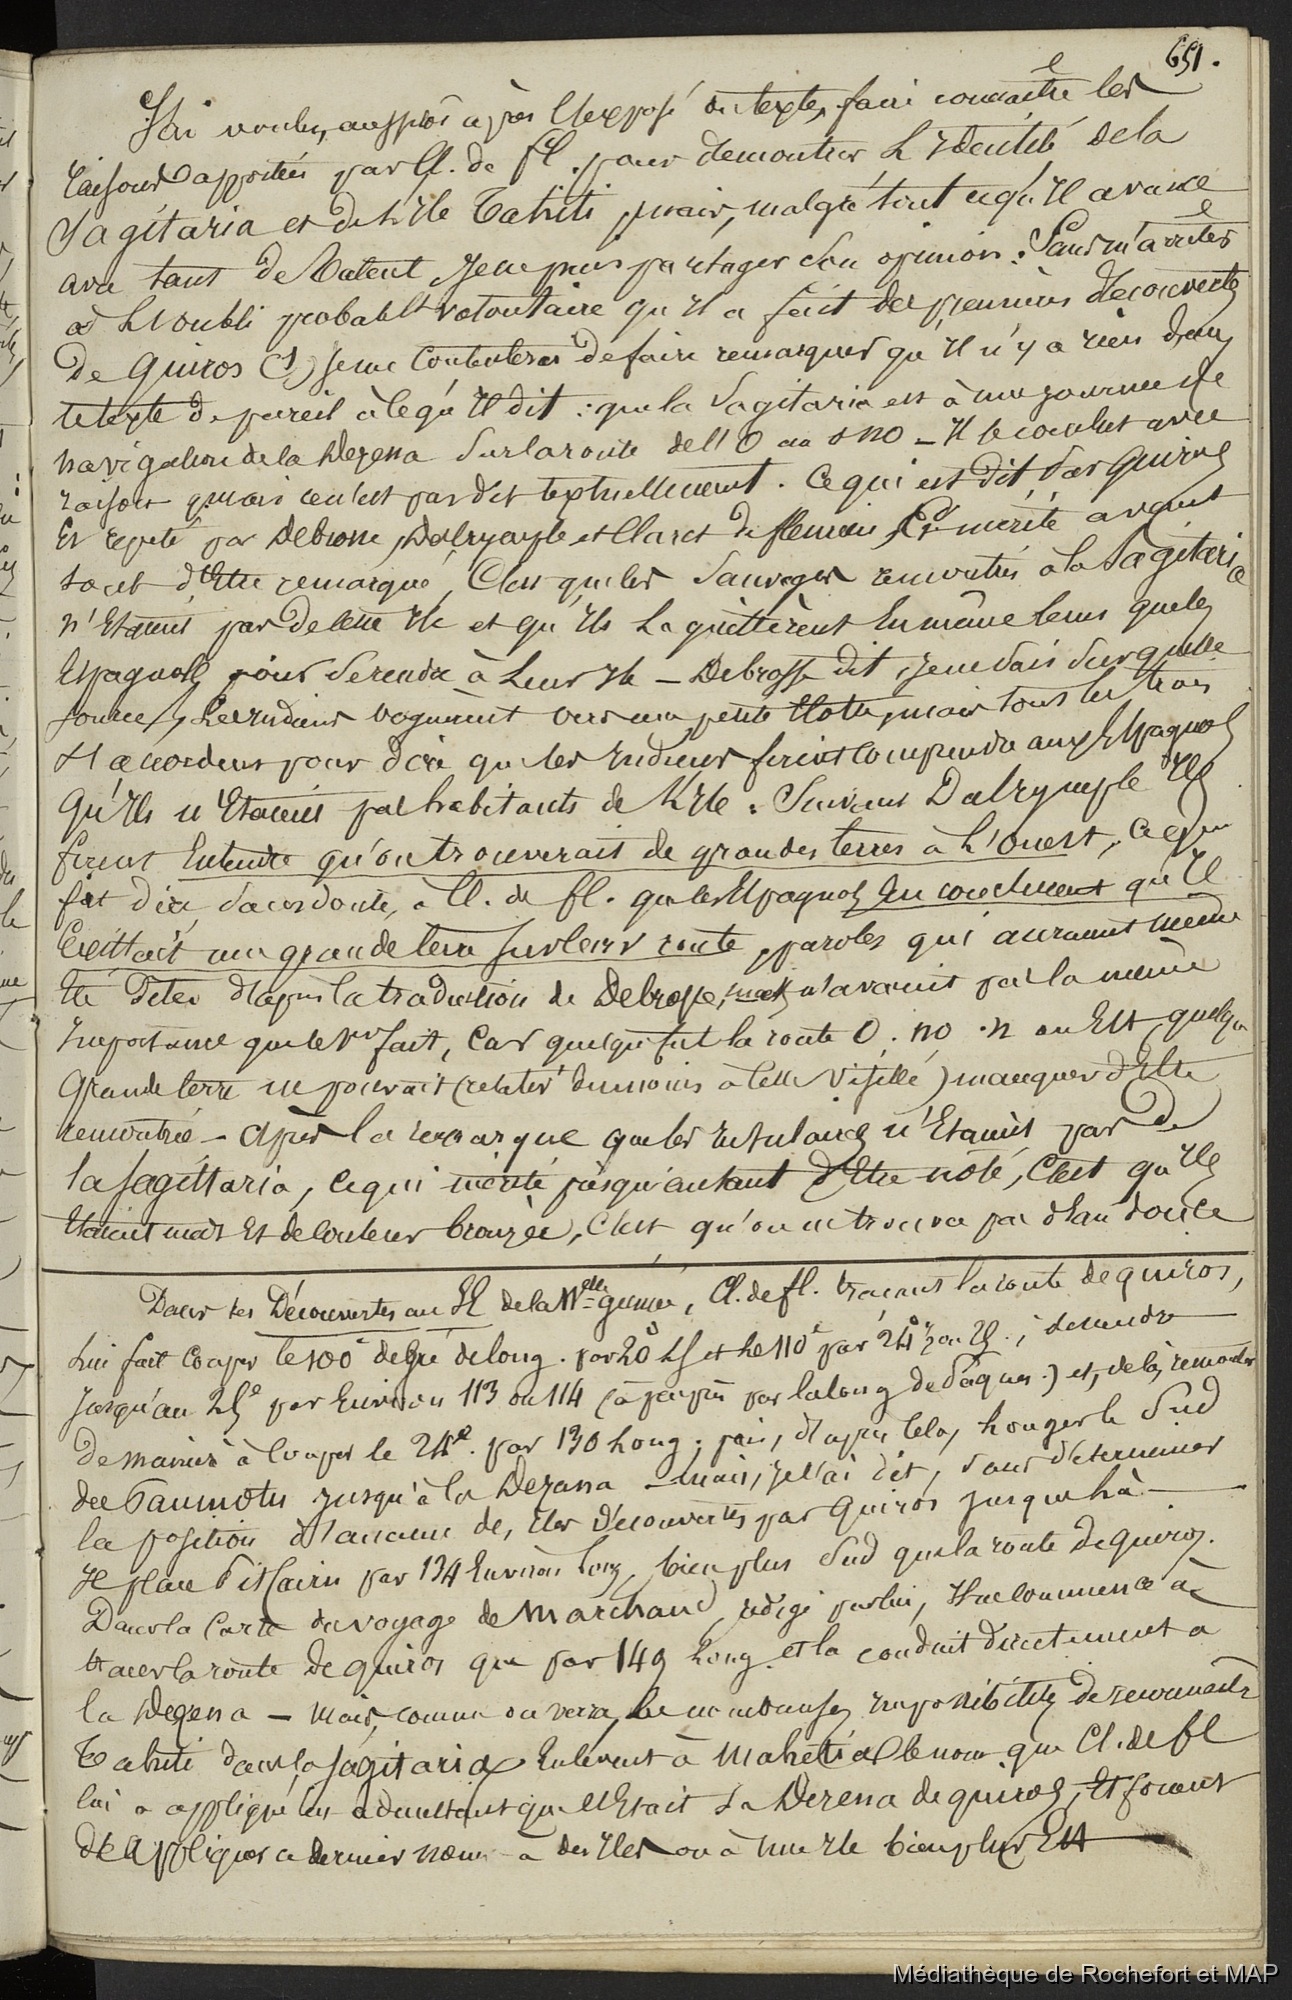 651.
J'ai voulu, aussitôt après l'exposé du texte, faire connaitre les
raisons apportées par Cl. de fl. pour demontrer L'Identité de la
Sagitaria et de L'Ile Tahiti, mais, malgré tout ce qu'Il avance
avec tant de talent, Je ne puis partager son opinion : Sans m'arrêter
à L'oubli probablt volontaire qu'Il a fait des premières découvertes
De Quiros (1) Je me Contenterai de faire remarquer qu'Il n'y a rien dans
le texte de pareil à ce qu'Il dit : que la Sagitaria est à une journée de
navigation de la Dezena Sur la route de l'O au ONO - Il le conclut avec
raison mais ce n'est pas dit textuellement. Ce qui est dit par Quiros
Et repeté par Debrosse, Dalrymple et Claret de flerieu, Et mérite avant
tout d'Etre remarqué, C'est que les Sauvages rencontrés à la Sagitaria
n'Etaient pas de cette Ile et qu'Ils La quittèrent En même tems que les
Espagnols pour Se rendre à Leur Ile - Debrosse dit, Je ne sais sur quelle
source, Les Indiens voguèrent vers une petite Ilote, mais tous les trois
s'accordent pour dire que les Indiens firent Comprendre aux Espagnols
qu'Ils n'Etaient pas habitants de L'Ile. Suivant Dalrymple Ils
firent Entendre qu'on trouverait de grandes terres à L'Ouest, Ce qui
fait dire, Sans doute, à Cl. de fl. que les Espagnols En conclurent qu'Il
Existait une grande terre sur leur route, paroles qui auraient même
Eté dites d'après la traduction de Debrosse, mais n'avaient pas la même
Importance que le 1er fait, Car quelque fut la route O. no. n ou Est, quelque
Grande terre ne pouvait (relativt du moins à Celle visitée) manquer d'Etre
rencontrée - après la remarque que les Insulaires n'Etaient pas de
la Sagittaria, Ce qui mérite presqu'autant d'Etre noté, C'est qu'Ils
Etaient nuds Et de Couleur bronzée, C'est qu'on ne trouva pas d'Eau douce
Dans ses Découvertes au SE de la Nelle guinée, Cl. de fl. tracant la route de quiros,
Lui fait Couper le 100e degré de long. par 20° LS et Le 110e par 24° ; descendre
Jusqu'au 25e par Environ 113 ou 114 (à peu près par la long de Pâques.) et, de là, remonter
De manière à Couper le 24e. par 130 Long ; puis, d'après cela, Longer le Sud
des Paumotu Jusqu'à la Dezana - mais, Je l'ai dit, Sans déterminer
la position d'aucune des Iles découvertes par Quiros Jusque Là -
Il place Pitcairn par 134 Environ Long, bien plus Sud que la route de quiros.
Dans la Carte du voyage de Marchand, redigé par lui, Il ne Commence à
tracer la route de quiros que par 149 Long. et la conduit directement à
la Dezena - Mais, comme on verra, Impossibilité de reconnaitre
Tahiti dans la Sagitaria Enlevent à Mahetia le nom que Cl. de fl
lui a appliqué en admettant qu'Elle Etait La Dezena de quiros, Et forcent
d'Appliquer ce dernier nom à des Iles ou à une Ile bien plus Est
Médiathèque de Rochefort et MAP